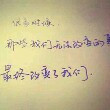 很多时候,
那些我们无法改变的事
最终改变了我们.